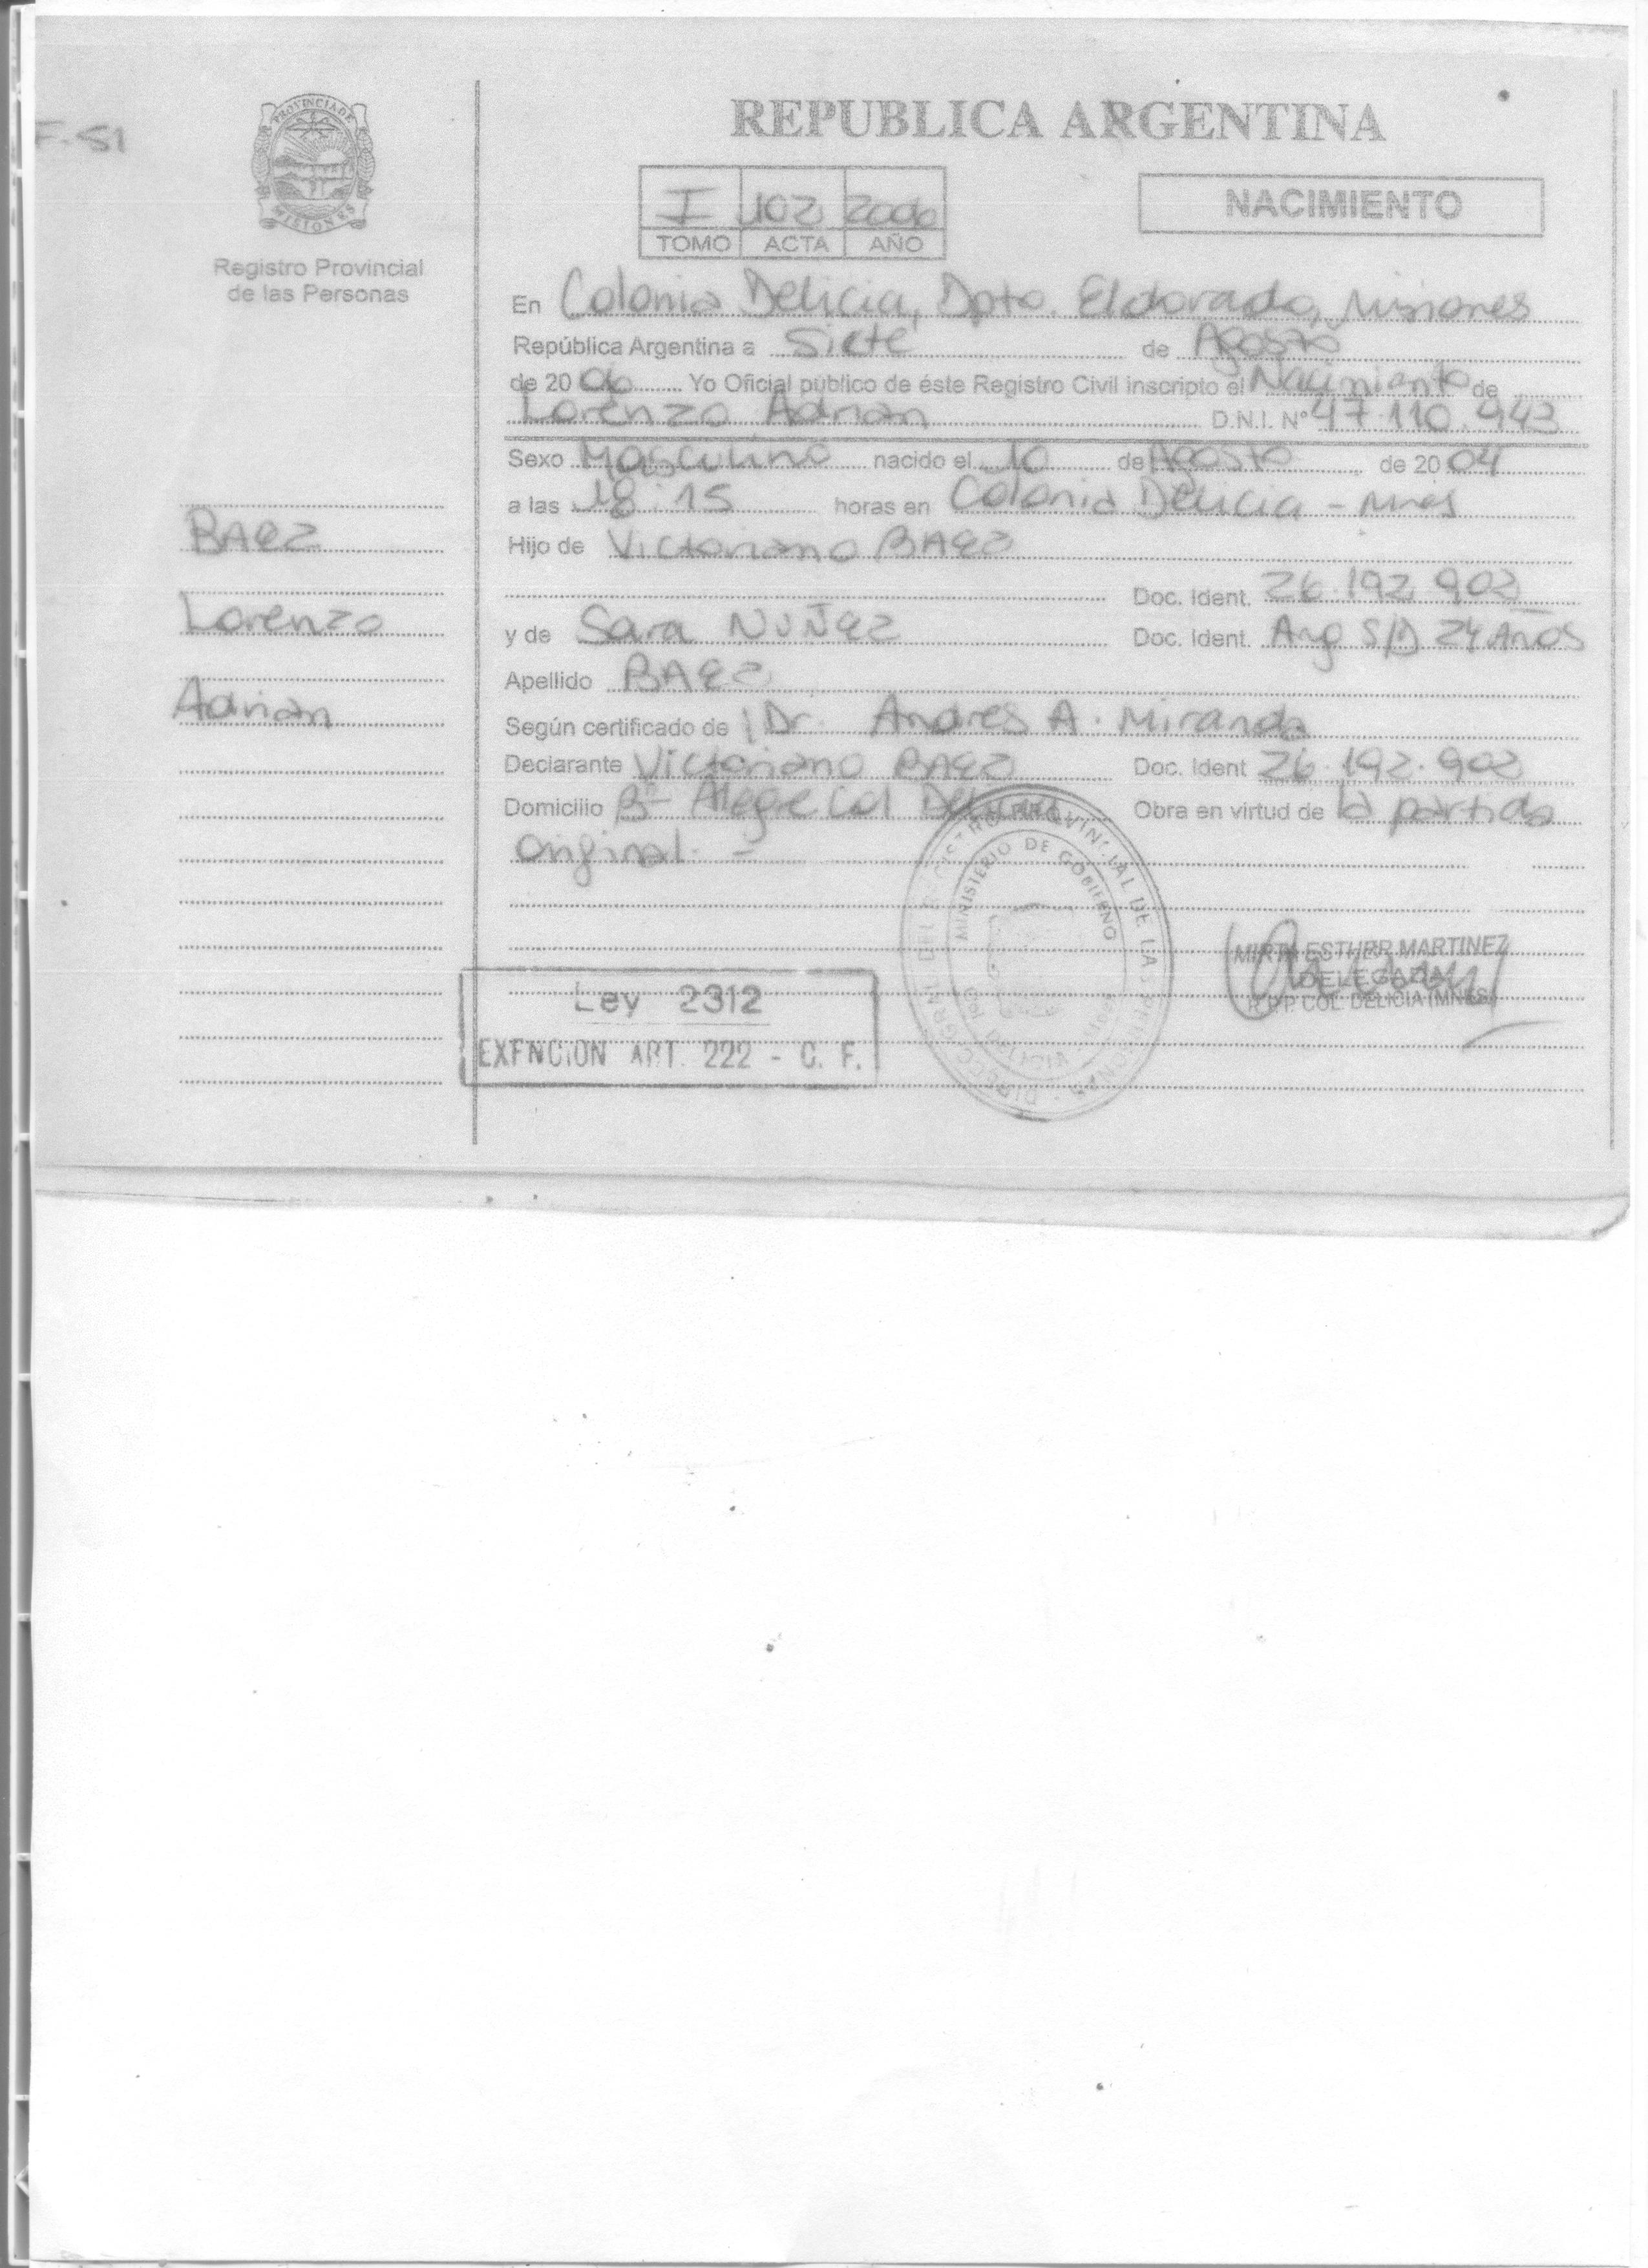 F-51
PROVINCIA DE
MISIONES
Registro Provincial
de las Personas
BAEZ
Lorenzo
Adrian
REPUBLICA ARGENTINA
I 102 2006
TOMO ACTA AÑO
NACIMIENTO
En Colonia Delicia, Dpto. Eldorado, Misiones
República Argentina a Siete de Agosto
de 20 06 Yo Oficial público de éste Registro Civil inscripto el Nacimiento de
Lorenzo Adrian D.N.I. Nº 47.110.943
Sexo Masculino nacido el 10 de Agosto de 20 04
a las 18:15 horas en Colonia Delicia - Mnes
Hijo de Victoriano BAEZ
Doc. Ident. 26.192.902
y de Sara NUÑEZ Doc. Ident. Arg S/D 24 Años
Apellido BAEZ
Según certificado de Dr. Andres A. Miranda
Declarante Victoriano BAEZ Doc. Ident 26.192.902
Domicilio Bº Alegre Col Delicia Obra en virtud de la partida
Original. -
REGISTRO PROVINCIAL DE LAS PERSONAS
MINISTERIO DE GOBIERNO
DELICIA
MIRTA ESTHER MARTINEZ
DELEGADA
R.P.P. COL. DELICIA (MNES)
Ley 2312
EXENCION ART. 222 - C. F.